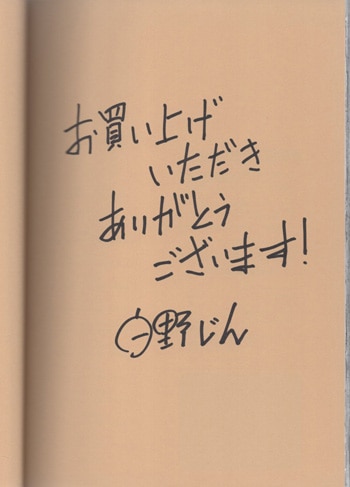 お買い上げ
いただき
ありがとう
ございます!
白野じん